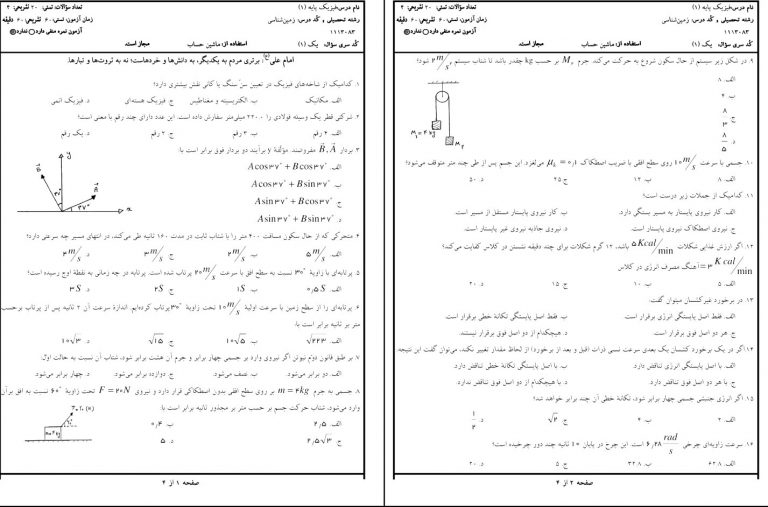 نام درس: فیزیک پایه (۱)
تعداد سؤالات: تستی: ۲۰ تشریحی: ۴
رشته تحصیلی و کُد درس: زمین‌شناسی
زمان آزمون: تستی: ۶۰ تشریحی: ۶۰ دقیقه
۱۱۱۳۰۸۳
آزمون نمره منفی دارد ○ ندارد ⊗
کُد سری سؤال: یک (۱)
استفاده از: ماشین حساب
مجاز است.
امام علی(ع): برتری مردم به یکدیگر، به دانش‌ها و خردهاست؛ نه به ثروت‌ها و تبارها.
۱. کدامیک از شاخه‌های فیزیک در تعیین سن سنگ یا کانی نقش بیشتری دارد؟
الف. مکانیک ب. الکتریسیته و مغناطیس ج. فیزیک هسته‌ای د. فیزیک اتمی
۲. شرکتی قطر یک وسیله فولادی را ۲۲.۰۰ میلی‌متر سفارش داده است. این عدد دارای چند رقم با معنی است؟
الف. ۴ رقم ب. ۳ رقم ج. ۲ رقم د. یک رقم
۳. بردار A، B مفروضند. مؤلفهٔ y برآیند دو بردار فوق برابر است با:
الف. Acos۳۷° + Bcos۳۷°
ب. Acos۳۷° + Bsin۳۷°
ج. Asin۳۷° + Bcos۳۷°
د. Asin۳۷° + Bsin۳۷°
y
x
۳۷°
۴. متحرکی که از حال سکون مسافت ۴۰۰ متر را با شتاب ثابت در مدت ۱۶۰ ثانیه طی می‌کند، در انتهای مسیر چه سرعتی دارد؟
الف. ۵ m/s ب. ۴ m/s ج. ۳ m/s د. ۲ m/s
۵. پرتابه‌ای با زاویهٔ ۳۰° نسبت به سطح افق با سرعت ۲۰ m/s پرتاب شده است. پرتابه در چه زمانی به نقطهٔ اوج رسیده است؟
الف. ۰٫۵S ب. ۱S ج. ۲S د. ۳S
۶. پرتابه‌ای را از سطح زمین با سرعت اولیهٔ ۱۰ m/s تحت زاویهٔ ۳۰° پرتاب کرده‌ایم. اندازهٔ سرعت آن ۲ ثانیه پس از پرتاب برحسب
متر بر ثانیه برابر است با:
الف. √۲۲۳ ب. ۱۰√۵ ج. √۱۵ د. ۱۰√۳
۷. بر طبق قانون دوم نیوتن اگر نیروی وارد بر جسمی چهار برابر و جرم آن هشت برابر شود، شتاب آن نسبت به حالت اول:
الف. دو برابر می‌شود ب. نصف می‌شود ج. دوازده برابر می‌شود د. چهار برابر می‌شود
۸. جسمی به جرم m = ۴kg بر روی سطح افقی بدون اصطکاکی قرار دارد و نیروی F = ۲۰N تحت زاویهٔ ۶۰° نسبت به افق بر آن
وارد می‌شود، شتاب حرکت جسم بر حسب متر بر مجذور ثانیه برابر است با:
الف. ۲٫۵ ب. ۰٫۴
ج. ۲٫۵√۳ د. ۵
صفحه ۱ از ۴
نام درس: فیزیک پایه (۱)
تعداد سؤالات: تستی: ۲۰ تشریحی: ۴
رشته تحصیلی و کُد درس: زمین‌شناسی
زمان آزمون: تستی: ۶۰ تشریحی: ۶۰ دقیقه
۱۱۱۳۰۸۳
آزمون نمره منفی دارد ○ ندارد ⊗
کُد سری سؤال: یک (۱)
استفاده از: ماشین حساب
مجاز است.
۹. در شکل زیر سیستم از حال سکون شروع به حرکت می‌کند. جرم M۲ بر حسب kg چقدر باشد تا شتاب سیستم ۲ m/s² شود؟
الف. ۸
ب. ۴
ج. ۸/۳
د. ۸/۵
M۱ = ۴kg
M۲
۱۰. جسمی با سرعت ۱۰ m/s روی سطح افقی با ضریب اصطکاک μk = ۰٫۱ می‌لغزد. این جسم پس از طی چند متر متوقف می‌شود؟
الف. ۸ ب. ۱۲ ج. ۲۵ د. ۵۰
۱۱. کدامیک از جملات زیر درست است؟
الف. کار نیروی پایستار به مسیر بستگی دارد. ب. کار نیروی پایستار مستقل از مسیر است.
ج. نیروی اصطکاک نیروی پایستار است. د. نیروی جاذبه نیروی غیر پایستار است.
۱۲. اگر ارزش غذایی شکلات ۵ Kcal/min باشد، ۱۲ گرم شکلات برای چند دقیقه نشستن در کلاس کفایت می‌کند؟
آهنگ مصرف انرژی در کلاس = ۳ Kcal/min
الف. ۵ ب. ۱۰ ج. ۱۵ د. ۲۰
۱۳. در برخورد غیرکشسان میتوان گفت:
الف. فقط اصل پایستگی انرژی برقرار است. ب. فقط اصل پایستگی تکانهٔ خطی برقرار است.
ج. هر دو اصل فوق برقرار است. د. هیچکدام از دو اصل فوق برقرار نیستند.
۱۴. اگر در یک برخورد کشسان یک بعدی سرعت نسبی ذرات (قبل و بعد از برخورد) از لحاظ مقدار تغییر نکند، می‌توان گفت این نتیجه
الف. با اصل پایستگی انرژی تناقض دارد. ب. با اصل پایستگی تکانهٔ خطی تناقض دارد.
ج. با هر دو اصل فوق تناقض دارد د. با هیچکدام از دو اصل فوق تناقض ندارد
۱۵. اگر انرژی جنبشی جسمی چهار برابر شود، تکانهٔ خطی آن چند برابر خواهد شد؟
الف. ۲ ب. ۴ ج. √۲ د. ۱/۲
۱۶. سرعت زاویه‌ای چرخی ۶٫۲۸ rad/s است. این چرخ در پایان ۱۰ ثانیه چند دور چرخیده است؟
الف. ۶۲.۸ ب. ۳۲.۸ ج. ۵ د. ۲۰
صفحه ۲ از ۴